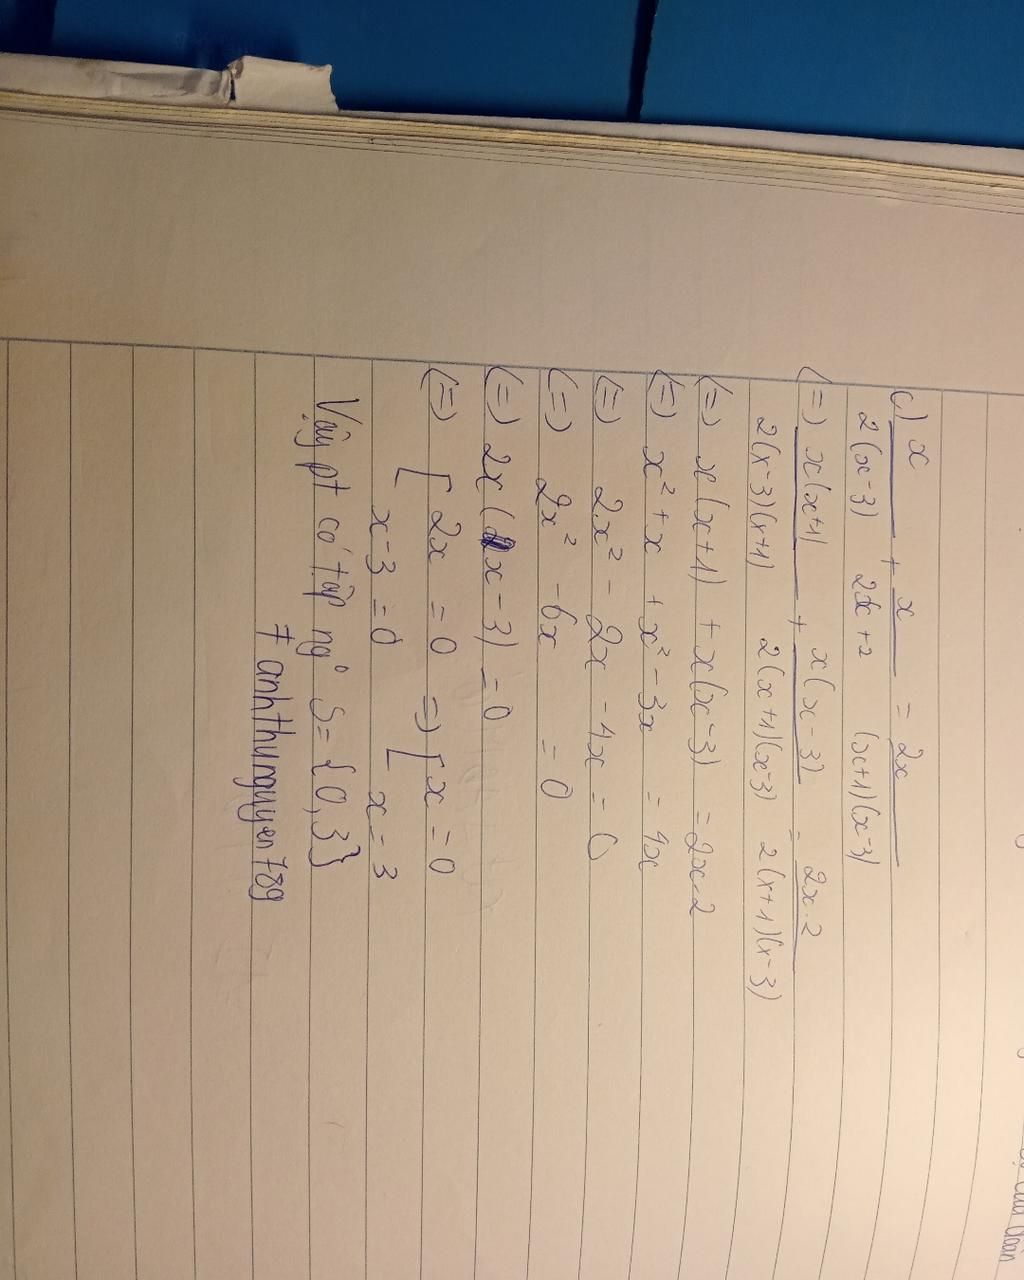 c) x/2(x-3) + x/2x+2 = 2x/(x+1)(x-3)
(=) x(x+1)/2(x-3)(x+1) + x(x-3)/2(x+1)(x-3) = 2x.2/2(x+1)(x-3)
(=) x(x+1) + x(x-3) = 2x.2
(=) x² + x + x² - 3x = 4x
(=) 2x² - 2x - 4x = 0
(=) 2x² - 6x = 0
(=) 2x(x-3) = 0
(=) [ 2x = 0 => [ x = 0
x-3 = 0 x = 3
Vậy pt có tập ngo S = {0,3}
# anhthunguyen789